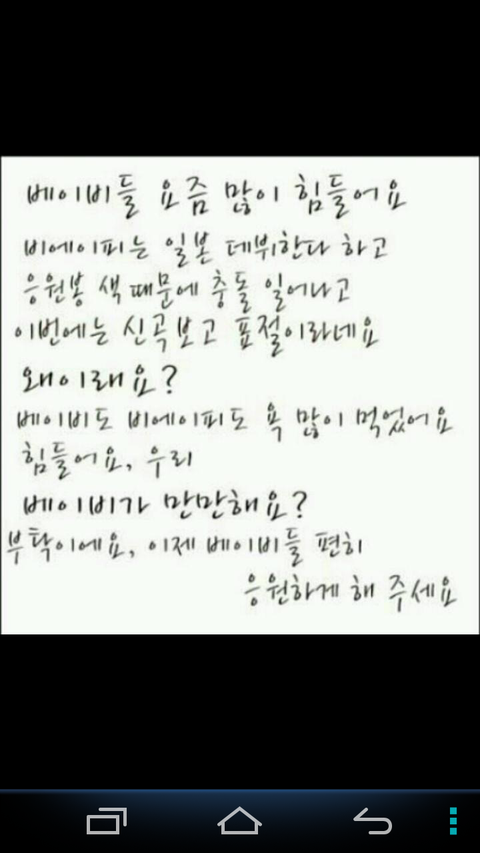 베이비들 요즘 많이 힘들어요
비에이피는 일본 데뷔한다 하고
응원봉 색 때문에 충돌 일어나고
이번에는 신곡보고 표절이라네요
왜이래요?
베이비도 비에이피도 욕 많이 먹었어요
힘들어요, 우리
베이비가 만만해요?
부탁이에요, 이제 베이비들 편히
응원하게 해 주세요